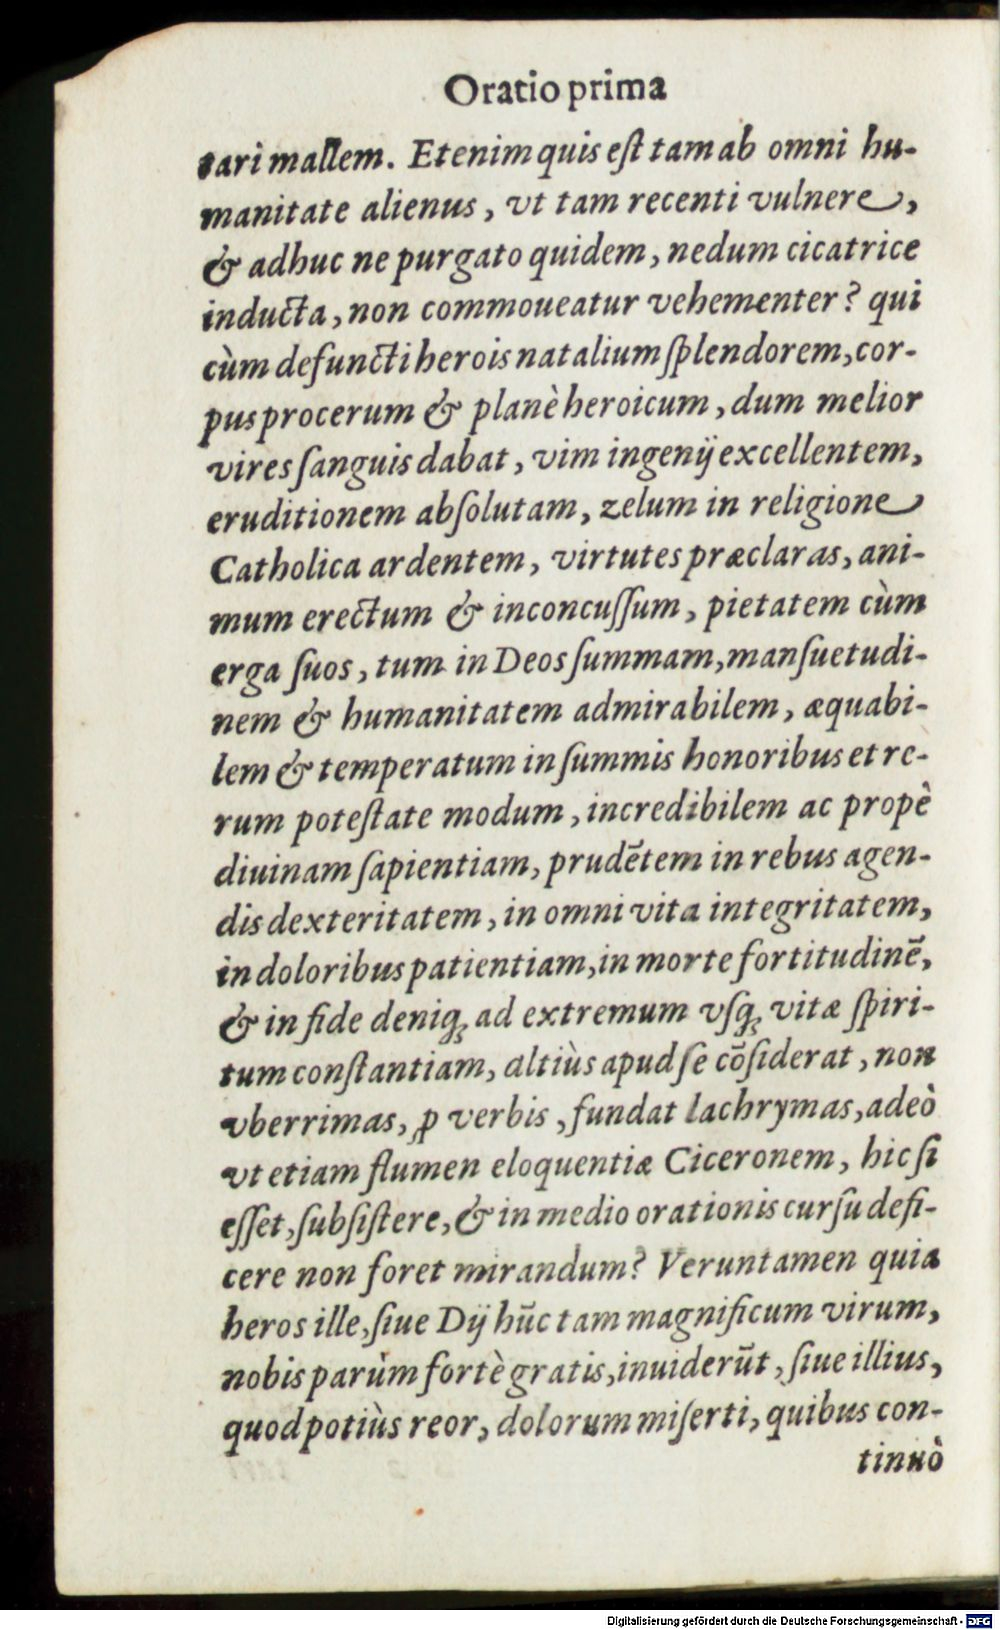 Oratio prima
tari mallem. Etenim quis eſt tam ab omni hu-
manitate alienus, vt tam recenti vulnere,
& adhuc ne purgato quidem, nedum cicatrice
inducta, non commoueatur vehementer? qui
cùm defuncti herois natalium ſplendorem, cor-
pus procerum & planè heroicum, dum melior
vires ſanguis dabat, vim ingenij excellentem,
eruditionem abſolutam, zelum in religione
Catholica ardentem, virtutes præclaras, ani-
mum erectum & inconcuſſum, pietatem cùm
erga ſuos, tum in Deos ſummam, manſuetudi-
nem & humanitatem admirabilem, æquabi-
lem & temperatum in ſummis honoribus et re-
rum poteſtate modum, incredibilem ac propè
diuinam ſapientiam, prudẽtem in rebus agen-
dis dexteritatem, in omni vita integritatem,
in doloribus patientiam, in morte fortitudinẽ,
& in fide deniq; ad extremum vſq; vitæ ſpiri-
tum conſtantiam, altiùs apud ſe cõſiderat, non
vberrimas, ꝓ verbis, fundat lachrymas, adeò
vt etiam flumen eloquentiæ Ciceronem, hic ſi
eſſet, ſubſiſtere, & in medio orationis curſu defi-
cere non foret mirandum? Veruntamen quia
heros ille, ſiue Dij hũc tam magnificum virum,
nobis parùm fortè gratis, inuiderũt, ſiue illius,
quod potiùs reor, dolorum miſerti, quibus con-
tinuò
Digitalisierung gefördert durch die Deutsche Forschungsgemeinschaft - DFG